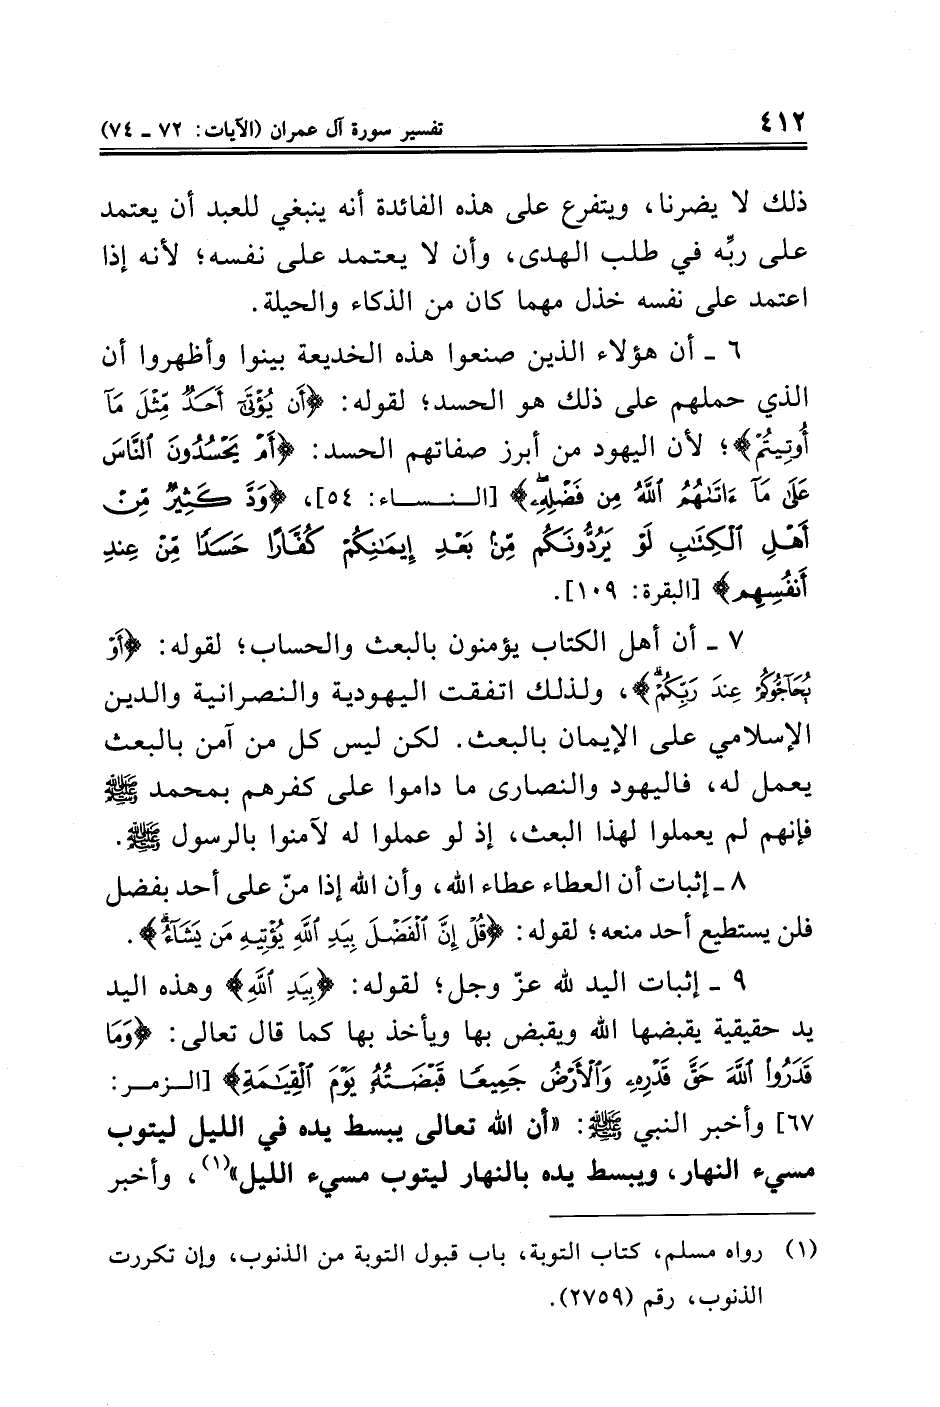 ٤١٢
تفسير سورة آل عمران (الآيات: ٧٢ ـ ٧٤)
ذلك لا يضرنا، ويتفرع على هذه الفائدة أنه ينبغي للعبد أن يعتمد
على ربِّه في طلب الهدى، وأن لا يعتمد على نفسه؛ لأنه إذا
اعتمد على نفسه خذل مهما كان من الذكاء والحيلة.
٦ ـ أن هؤلاء الذين صنعوا هذه الخديعة بينوا وأظهروا أن
الذي حملهم على ذلك هو الحسد؛ لقوله: ﴿أَن يُؤْتَىٰٓ أَحَدٌ مِّثْلَ مَآ
أُوتِيتُمْ﴾؛ لأن اليهود من أبرز صفاتهم الحسد: ﴿أَمْ يَحْسُدُونَ ٱلنَّاسَ
عَلَىٰ مَآ ءَاتَىٰهُمُ ٱللَّهُ مِن فَضْلِهِۦۖ﴾ [النساء: ٥٤]، ﴿وَدَّ كَثِيرٌ مِّنْ
أَهْلِ ٱلْكِتَٰبِ لَوْ يَرُدُّونَكُم مِّنۢ بَعْدِ إِيمَٰنِكُمْ كُفَّارًا حَسَدًا مِّنْ عِندِ
أَنفُسِهِم﴾ [البقرة: ١٠٩].
٧ ـ أن أهل الكتاب يؤمنون بالبعث والحساب؛ لقوله: ﴿أَوْ
يُحَآجُّوكُمْ عِندَ رَبِّكُمْۗ﴾، ولذلك اتفقت اليهودية والنصرانية والدين
الإسلامي على الإيمان بالبعث. لكن ليس كل من آمن بالبعث
يعمل له، فاليهود والنصارى ما داموا على كفرهم بمحمد ﷺ
فإنهم لم يعملوا لهذا البعث، إذ لو عملوا له لآمنوا بالرسول ﷺ.
٨ ـ إثبات أن العطاء عطاء الله، وأن الله إذا منّ على أحد بفضل
فلن يستطيع أحد منعه؛ لقوله: ﴿قُلْ إِنَّ ٱلْفَضْلَ بِيَدِ ٱللَّهِ يُؤْتِيهِ مَن يَشَآءُۗ﴾.
٩ ـ إثبات اليد لله عزّ وجل؛ لقوله: ﴿بِيَدِ ٱللَّهِ﴾ وهذه اليد
يد حقيقية يقبضها الله ويقبض بها ويأخذ بها كما قال تعالى: ﴿وَمَا
قَدَرُوا۟ ٱللَّهَ حَقَّ قَدْرِهِۦ وَٱلْأَرْضُ جَمِيعًا قَبْضَتُهُۥ يَوْمَ ٱلْقِيَٰمَةِ﴾ [الزمر:
٦٧] وأخبر النبي ﷺ: «أن الله تعالى يبسط يده في الليل ليتوب
مسيء النهار، ويبسط يده بالنهار ليتوب مسيء الليل»(١)، وأخبر
(١) رواه مسلم، كتاب التوبة، باب قبول التوبة من الذنوب، وإن تكررت
الذنوب، رقم (٢٧٥٩).